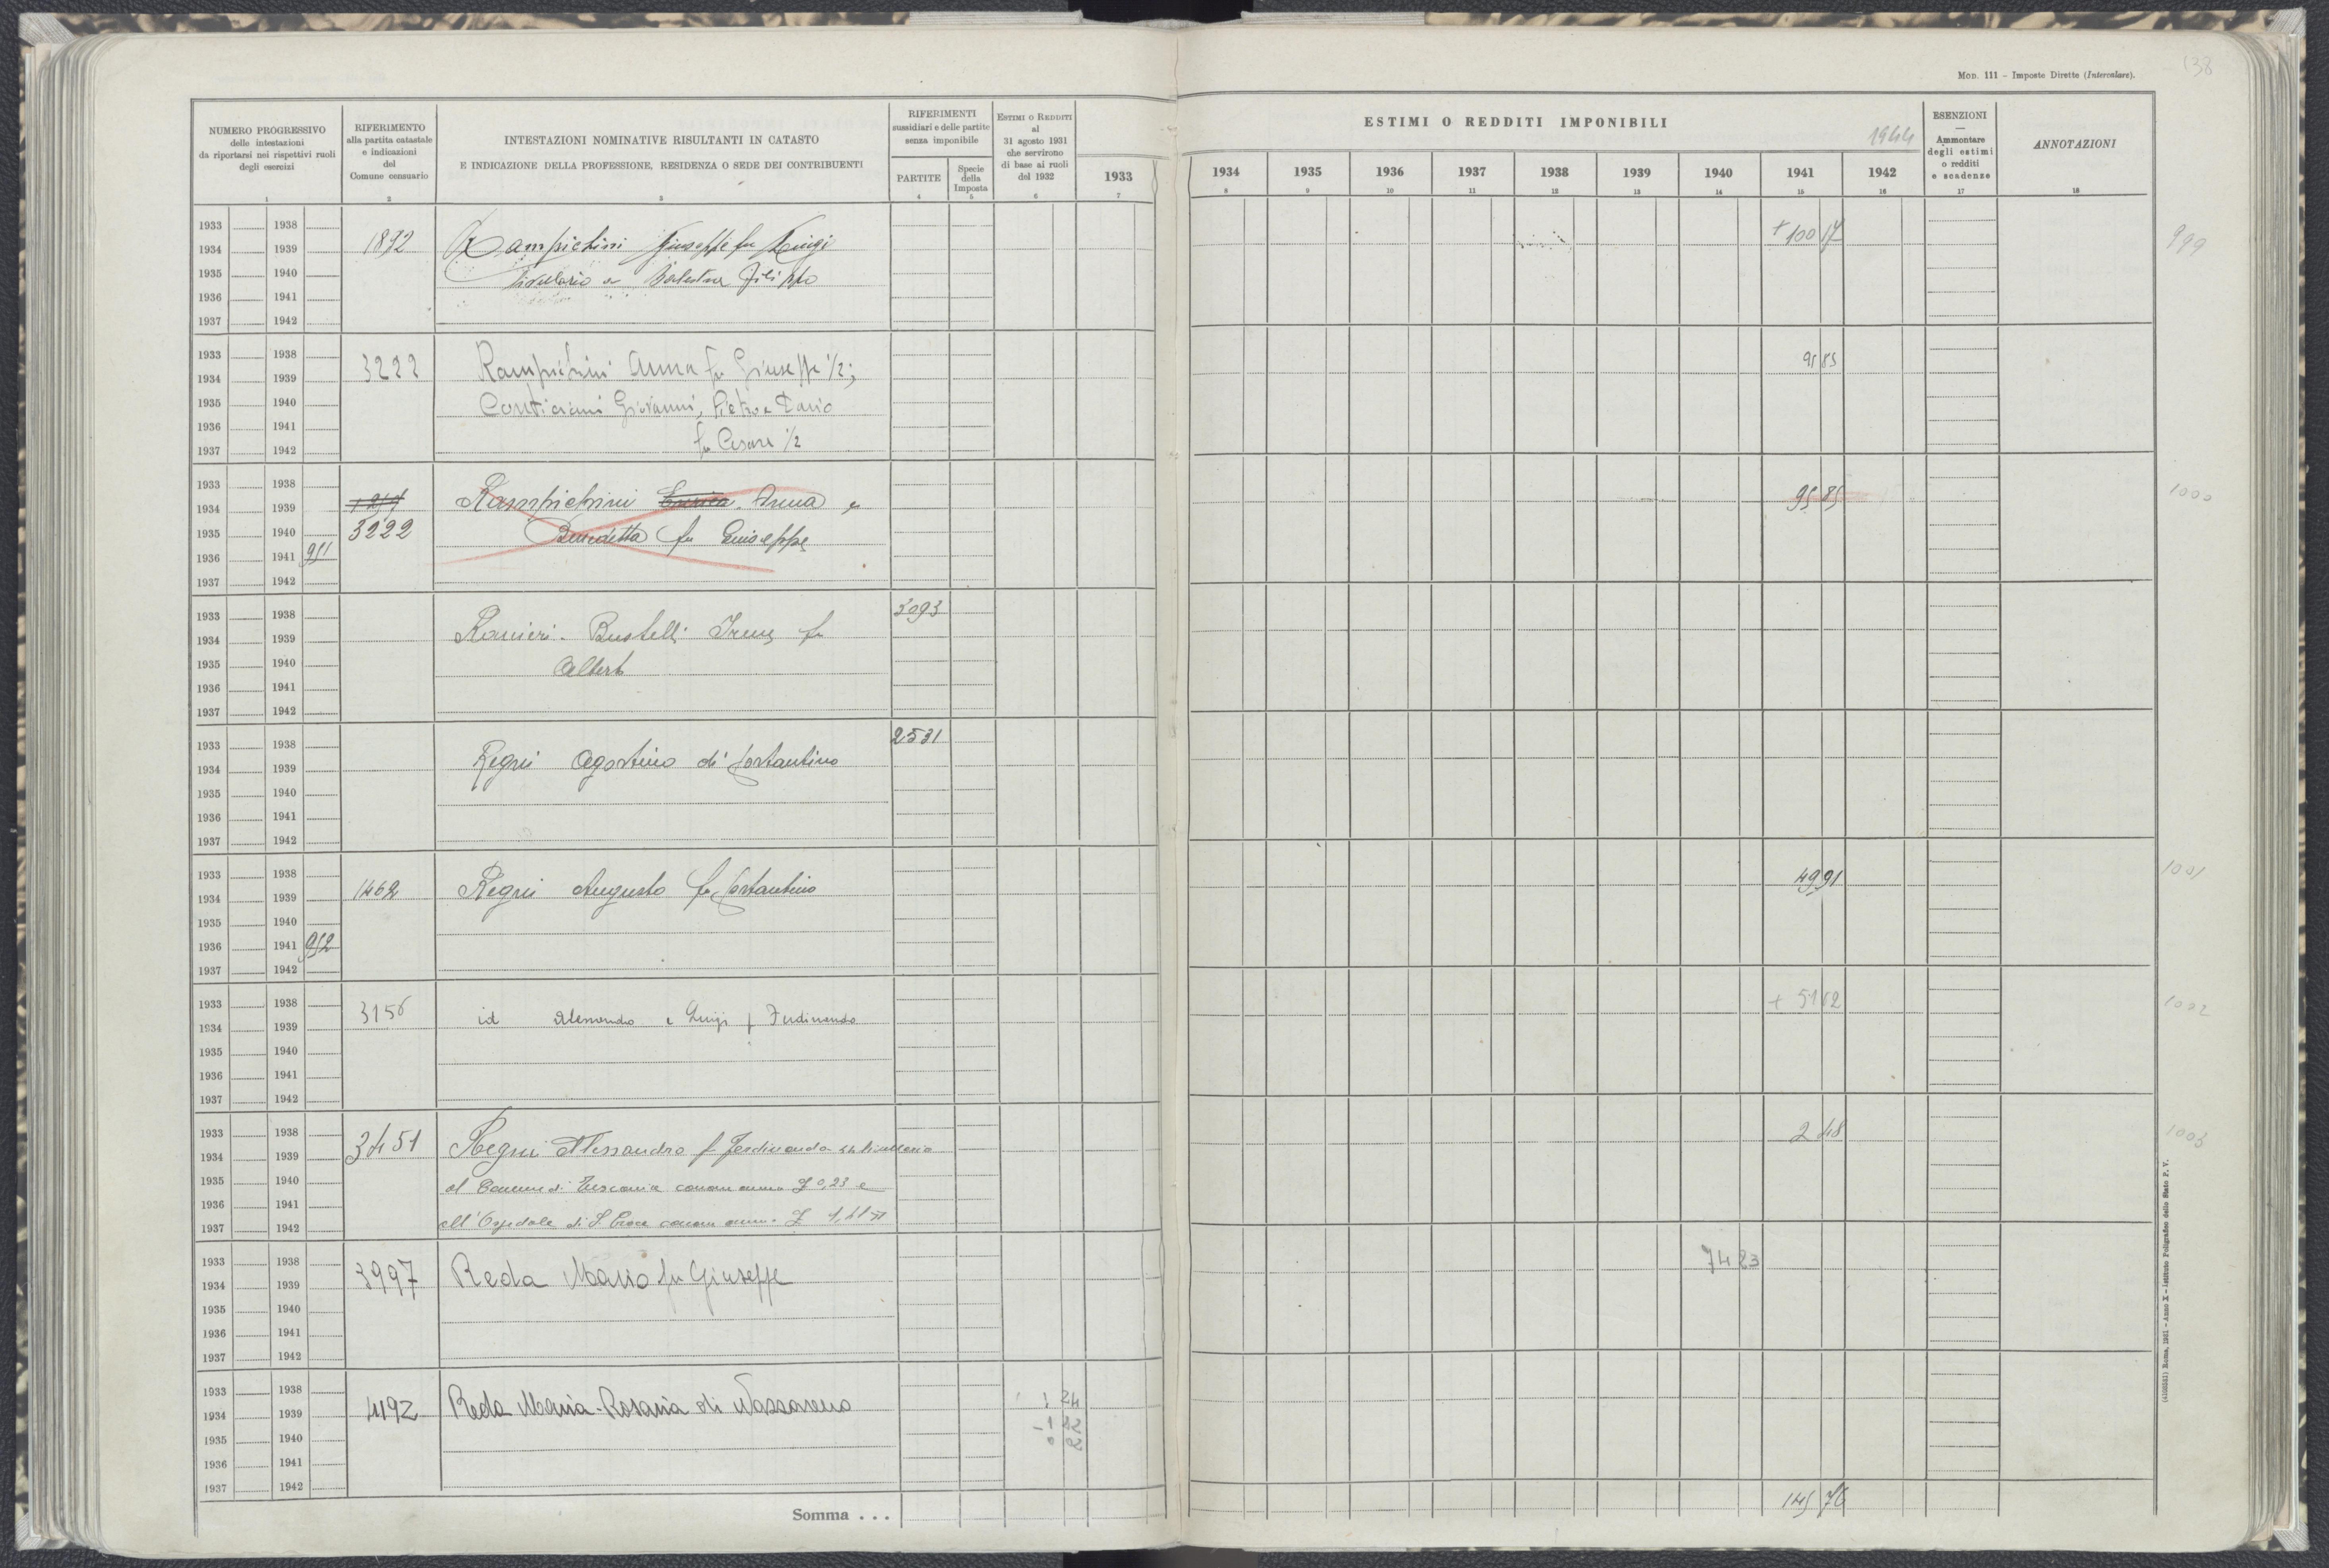 Mod. 111 – Imposte Dirette (Intercalare).
138
NUMERO PROGRESSIVO
delle intestazioni
da riportarsi nei rispettivi ruoli
degli esercizi
RIFERIMENTO
alla partita catastale
e indicazioni
del
Comune censuario
INTESTAZIONI NOMINATIVE RISULTANTI IN CATASTO
E INDICAZIONE DELLA PROFESSIONE, RESIDENZA O SEDE DEI CONTRIBUENTI
RIFERIMENTI
sussidiari e delle partite
senza imponibile
PARTITE
Specie
della
Imposta
ESTIMI O REDDITI
al
31 agosto 1931
che servirono
di base ai ruoli
del 1932
ESTIMI O REDDITI IMPONIBILI
1944
1933 1934 1935 1936 1937 1938 1939 1940 1941 1942
ESENZIONI
—
Ammontare
degli estimi
o redditi
e scadenze
ANNOTAZIONI
1 2 3 4 5 6 7 8 9 10 11 12 13 14 15 16 17 18
1933 1938
1934 1939
1935 1940
1936 1941
1937 1942
1892 Rampichini Giuseppe fu Luigi + 100 17 999
livellario a Filippo
1933 1938
1934 1939
1935 1940
1936 1941
1937 1942
3222 Rampichini Anna fu Giuseppe 1/2; 95 85
Conticiani Giovanni, Pietro e Dario
fu Cesare 1/2
1933 1938
1934 1939
1935 1940
1936 1941 951
1937 1942
Rampichini Enrica Anna e 95 85 1000
3222 Benedetta fu Giuseppe
1933 1938
1934 1939
1935 1940
1936 1941
1937 1942
3093
Ranieri-Bustelli Irene fu
Alberto
1933 1938
1934 1939
1935 1940
1936 1941
1937 1942
2531
Regni Agostino di Costantino
1933 1938
1934 1939
1935 1940
1936 1941 952
1937 1942
1462 Regni Augusto fu Costantino 49 91 1001
1933 1938
1934 1939
1935 1940
1936 1941
1937 1942
3156 id Alessandro e Luigi f Ferdinando + 51 62 1002
1933 1938
1934 1939
1935 1940
1936 1941
1937 1942
3451 Regni Alessandro f Ferdinando livellario 2 48 1003
al Comune di Tuscania canone annuo £ 0,23 e
all'Ospedale di S. Croce canone annuo £
1933 1938
1934 1939
1935 1940
1936 1941
1937 1942
3997 Reda Mario fu Giuseppe 74 23
1933 1938
1934 1939
1935 1940
1936 1941
1937 1942
4192 Reda Maria-Rosaria di Nazzareno 1 24
-1 22
0 2
Somma . . . 145 76
(4100551) Roma, 1931 - Anno X - Istituto Poligrafico dello Stato P. V.